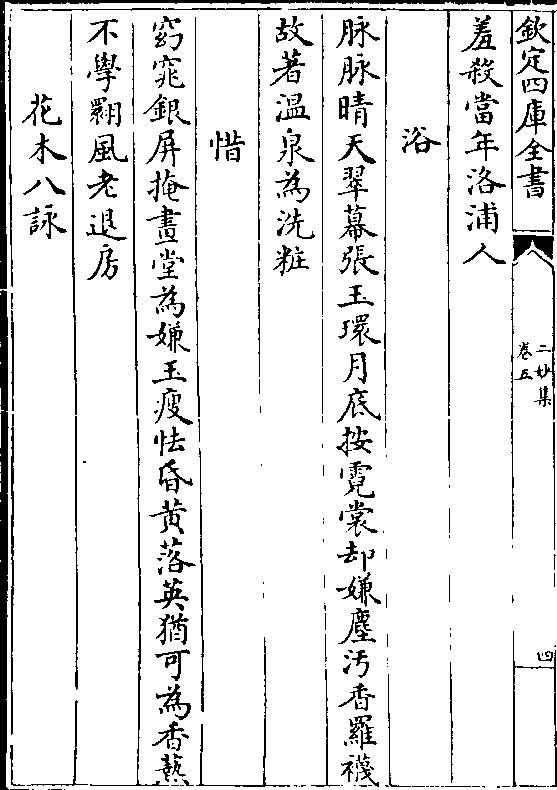 欽定四庫全書
二妙集
卷五
四
羞殺當年洛浦人
浴
脉脉晴天翠幕張玉環月底按霓裳却嫌塵汚香羅襪
故著溫泉為洗粧
惜
窈窕銀屏掩畫堂為嫌玉瘦怯昏黄落英猶可為香爇
不學翾風老退房
花木八詠